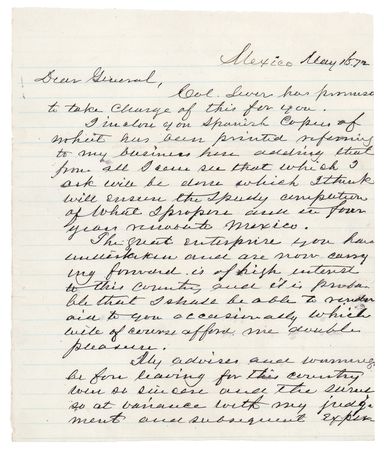 Mexico May 16 72
Dear General,
Col. has promised
to take charge of this for you.
I inclose you Spanish Copies of
what has been printed referring
to my business here adding that
from all I can see that which I
ask will be done which I think
will ensure the speedy completion
of what I propose and in four
years renovate Mexico.
The great enterprise you have
undertaken and are now carry
ing forward is of high interest
to this country and it is proba
ble that I shall be able to render
aid to you occasionally which
will of course afford me double
pleasure.
My advises and warnings
before leaving for this country
were so sincere and the
so at variance with my judg
ment and subsequent